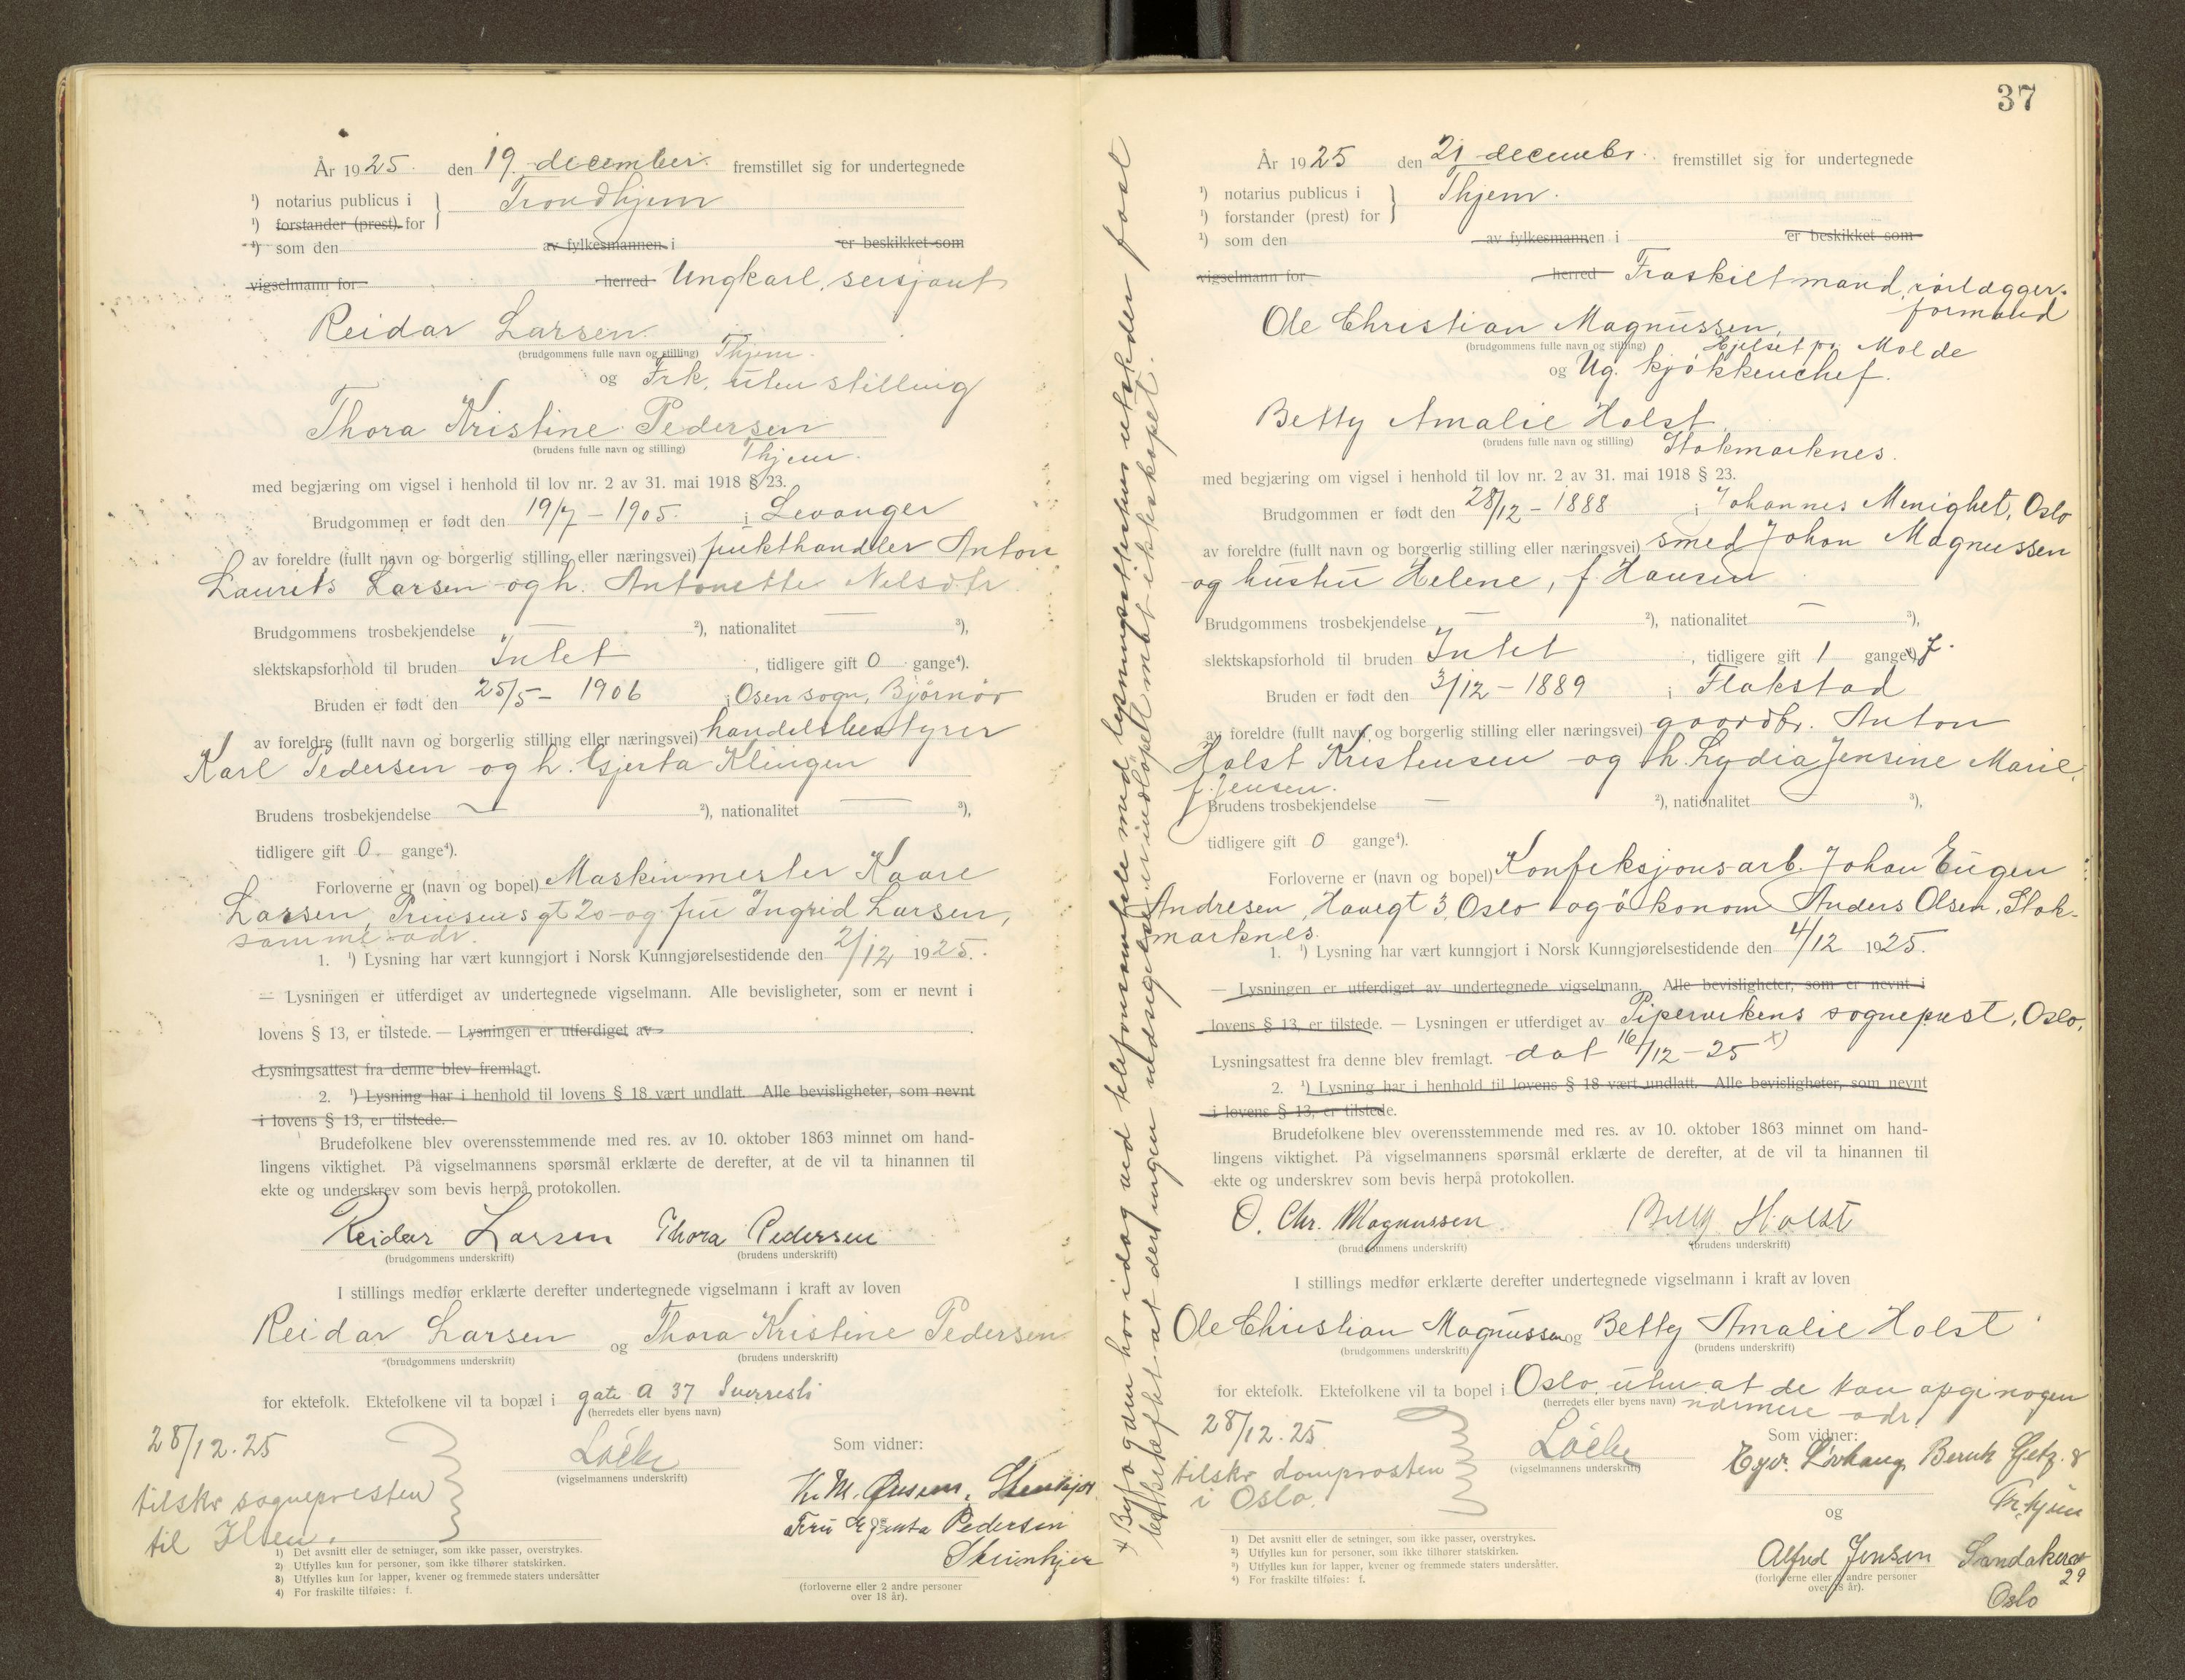 År 1925. den 19. december. fremstillet sig for undertegnede
¹) notarius publicus i } Trondhjem
¹) forstander (prest) for
¹) som den av fylkesmannen i er beskikket som
vigselmann for herred Ungkarl, sersjant
Reidar Larsen.
(brudgommens fulle navn og stilling) Thjem.
og Frk. uten stilling
Thora Kristine Pedersen
(brudens fulle navn og stilling) Thjem.
med begjæring om vigsel i henhold til lov nr. 2 av 31. mai 1918 § 23.
Brudgommen er født den 19/7 - 1905. i Levanger
av foreldre (fullt navn og borgerlig stilling eller næringsvei) frukthandler Anton
Laurits Larsen og h. Antonette Nelsdtr
Brudgommens trosbekjendelse — ²), nationalitet — ³),
slektskapsforhold til bruden Intet, tidligere gift 0 gange⁴).
Bruden er født den 25/5 - 1906 i Osen sogn, Bjørnør
av foreldre (fullt navn og borgerlig stilling eller næringsvei) handelsbestyrer
Karl Pedersen og h. Gjerta Klingen
Brudens trosbekjendelse — ²), nationalitet — ³),
tidligere gift 0. gange⁴).
Forloverne er (navn og bopel) Maskinmester Kaare
Larsen, Prinsensgt 20 og fru Ingrid Larsen,
samme adr.
1. ¹) Lysning har vært kunngjort i Norsk Kunngjørelsestidende den 2/12 1925.
— Lysningen er utferdiget av undertegnede vigselmann. Alle bevisligheter, som er nevnt i
lovens § 13, er tilstede. — Lysningen er utferdiget av
Lysningsattest fra denne blev fremlagt.
2. ¹) Lysning har i henhold til lovens § 18 vært undlatt. Alle bevisligheter, som nevnt
i lovens § 13, er tilstede.
Brudefolkene blev overensstemmende med res. av 10. oktober 1863 minnet om hand-
lingens viktighet. På vigselmannens spørsmål erklærte de derefter, at de vil ta hinannen til
ekte og underskrev som bevis herpå protokollen.
Reidar Larsen Thora Pedersen
(brudgommens underskrift) (brudens underskrift)
I stillings medfør erklærte derefter undertegnede vigselmann i kraft av loven
Reidar Larsen og Thora Kristine Pedersen
(brudgommens underskrift) (brudens underskrift)
for ektefolk. Ektefolkene vil ta bopæl i gate A 37 Sverresli
(herredets eller byens navn)
28/12.25
tilskr sognepresten
til Ilen.
(vigselmannens underskrift)
Som vidner:
Fru Pedersen
(forloverne eller 2 andre personer
over 18 år).
1) Det avsnitt eller de setninger, som ikke passer, overstrykes.
2) Utfylles kun for personer, som ikke tilhører statskirken.
3) Utfylles kun for lapper, kvener og fremmede staters undersåtter
4) For fraskilte tilføies: f.
x) Byfogden her idag ved telefonsamtale med lysningsutstederen utsteder fast
bekræftet at der ingen indsigelser er indløpet mot ekteskapet.
37
År 1925 den 21 decembr. fremstillet sig for undertegnede
¹) notarius publicus i } Thjem.
¹) forstander (prest) for
¹) som den av fylkesmannen i er beskikket som
vigselmann for herred Fraskilt mand, rørlægger-
formand
Ole Christian Magnussen,
(brudgommens fulle navn og stilling) Hjelset pr. Molde
og Ug. kjøkkenchef.
Betty Amalie Holst
(brudens fulle navn og stilling) Stokmarknes.
med begjæring om vigsel i henhold til lov nr. 2 av 31. mai 1918 § 23.
Brudgommen er født den 28/12 - 1888 i Johannes Menighet, Oslo
av foreldre (fullt navn og borgerlig stilling eller næringsvei) smed Johan Magnussen
og hustru Helene, f. Hansen
Brudgommens trosbekjendelse — ²), nationalitet — ³),
slektskapsforhold til bruden Intet, tidligere gift 1 gange⁴) f.
Bruden er født den 3/12 - 1889 i Flakstad
av foreldre (fullt navn og borgerlig stilling eller næringsvei) gaardbr. Anton
Holst Kristensen og h. Lydia Jensine Marie
f. Jensen.
Brudens trosbekjendelse — ²), nationalitet — ³),
tidligere gift 0 gange⁴).
Forloverne er (navn og bopel) Konfeksjonsarb. Johan Eugen
Andresen, Havegt 3, Oslo og økonom Anders Olsen, Stok-
marknes.
1. ¹) Lysning har vært kunngjort i Norsk Kunngjørelsestidende den 4/12 1925.
— Lysningen er utferdiget av undertegnede vigselmann. Alle bevisligheter, som er nevnt i
lovens § 13, er tilstede. — Lysningen er utferdiget av Pipervikens sogneprest, Oslo,
Lysningsattest fra denne blev fremlagt. dat 16/12 - 25 x)
2. ¹) Lysning har i henhold til lovens § 18 vært undlatt. Alle bevisligheter, som nevnt
i lovens § 13, er tilstede.
Brudefolkene blev overensstemmende med res. av 10. oktober 1863 minnet om hand-
lingens viktighet. På vigselmannens spørsmål erklærte de derefter, at de vil ta hinannen til
ekte og underskrev som bevis herpå protokollen.
O. Chr. Magnussen. Betty Holst
(brudgommens underskrift) (brudens underskrift)
I stillings medfør erklærte derefter undertegnede vigselmann i kraft av loven
Ole Christian Magnussen og Betty Amalie Holst
(brudgommens underskrift) (brudens underskrift)
for ektefolk. Ektefolkene vil ta bopel i Oslo, uten at de kan opgi nogen
(herredets eller byens navn) nærmere adr.
28/12.25
tilskr domprosten
i Oslo.
(vigselmannens underskrift)
Som vidner:
og
Alfred Jensen Sandakerv
29
Oslo
(forloverne eller 2 andre personer
over 18 år).
1) Det avsnitt eller de setninger, som ikke passer, overstrykes.
2) Utfylles kun for personer, som ikke tilhører statskirken.
3) Utfylles kun for lapper, kvener og fremmede staters undersåtter.
4) For fraskilte tilføies: f.